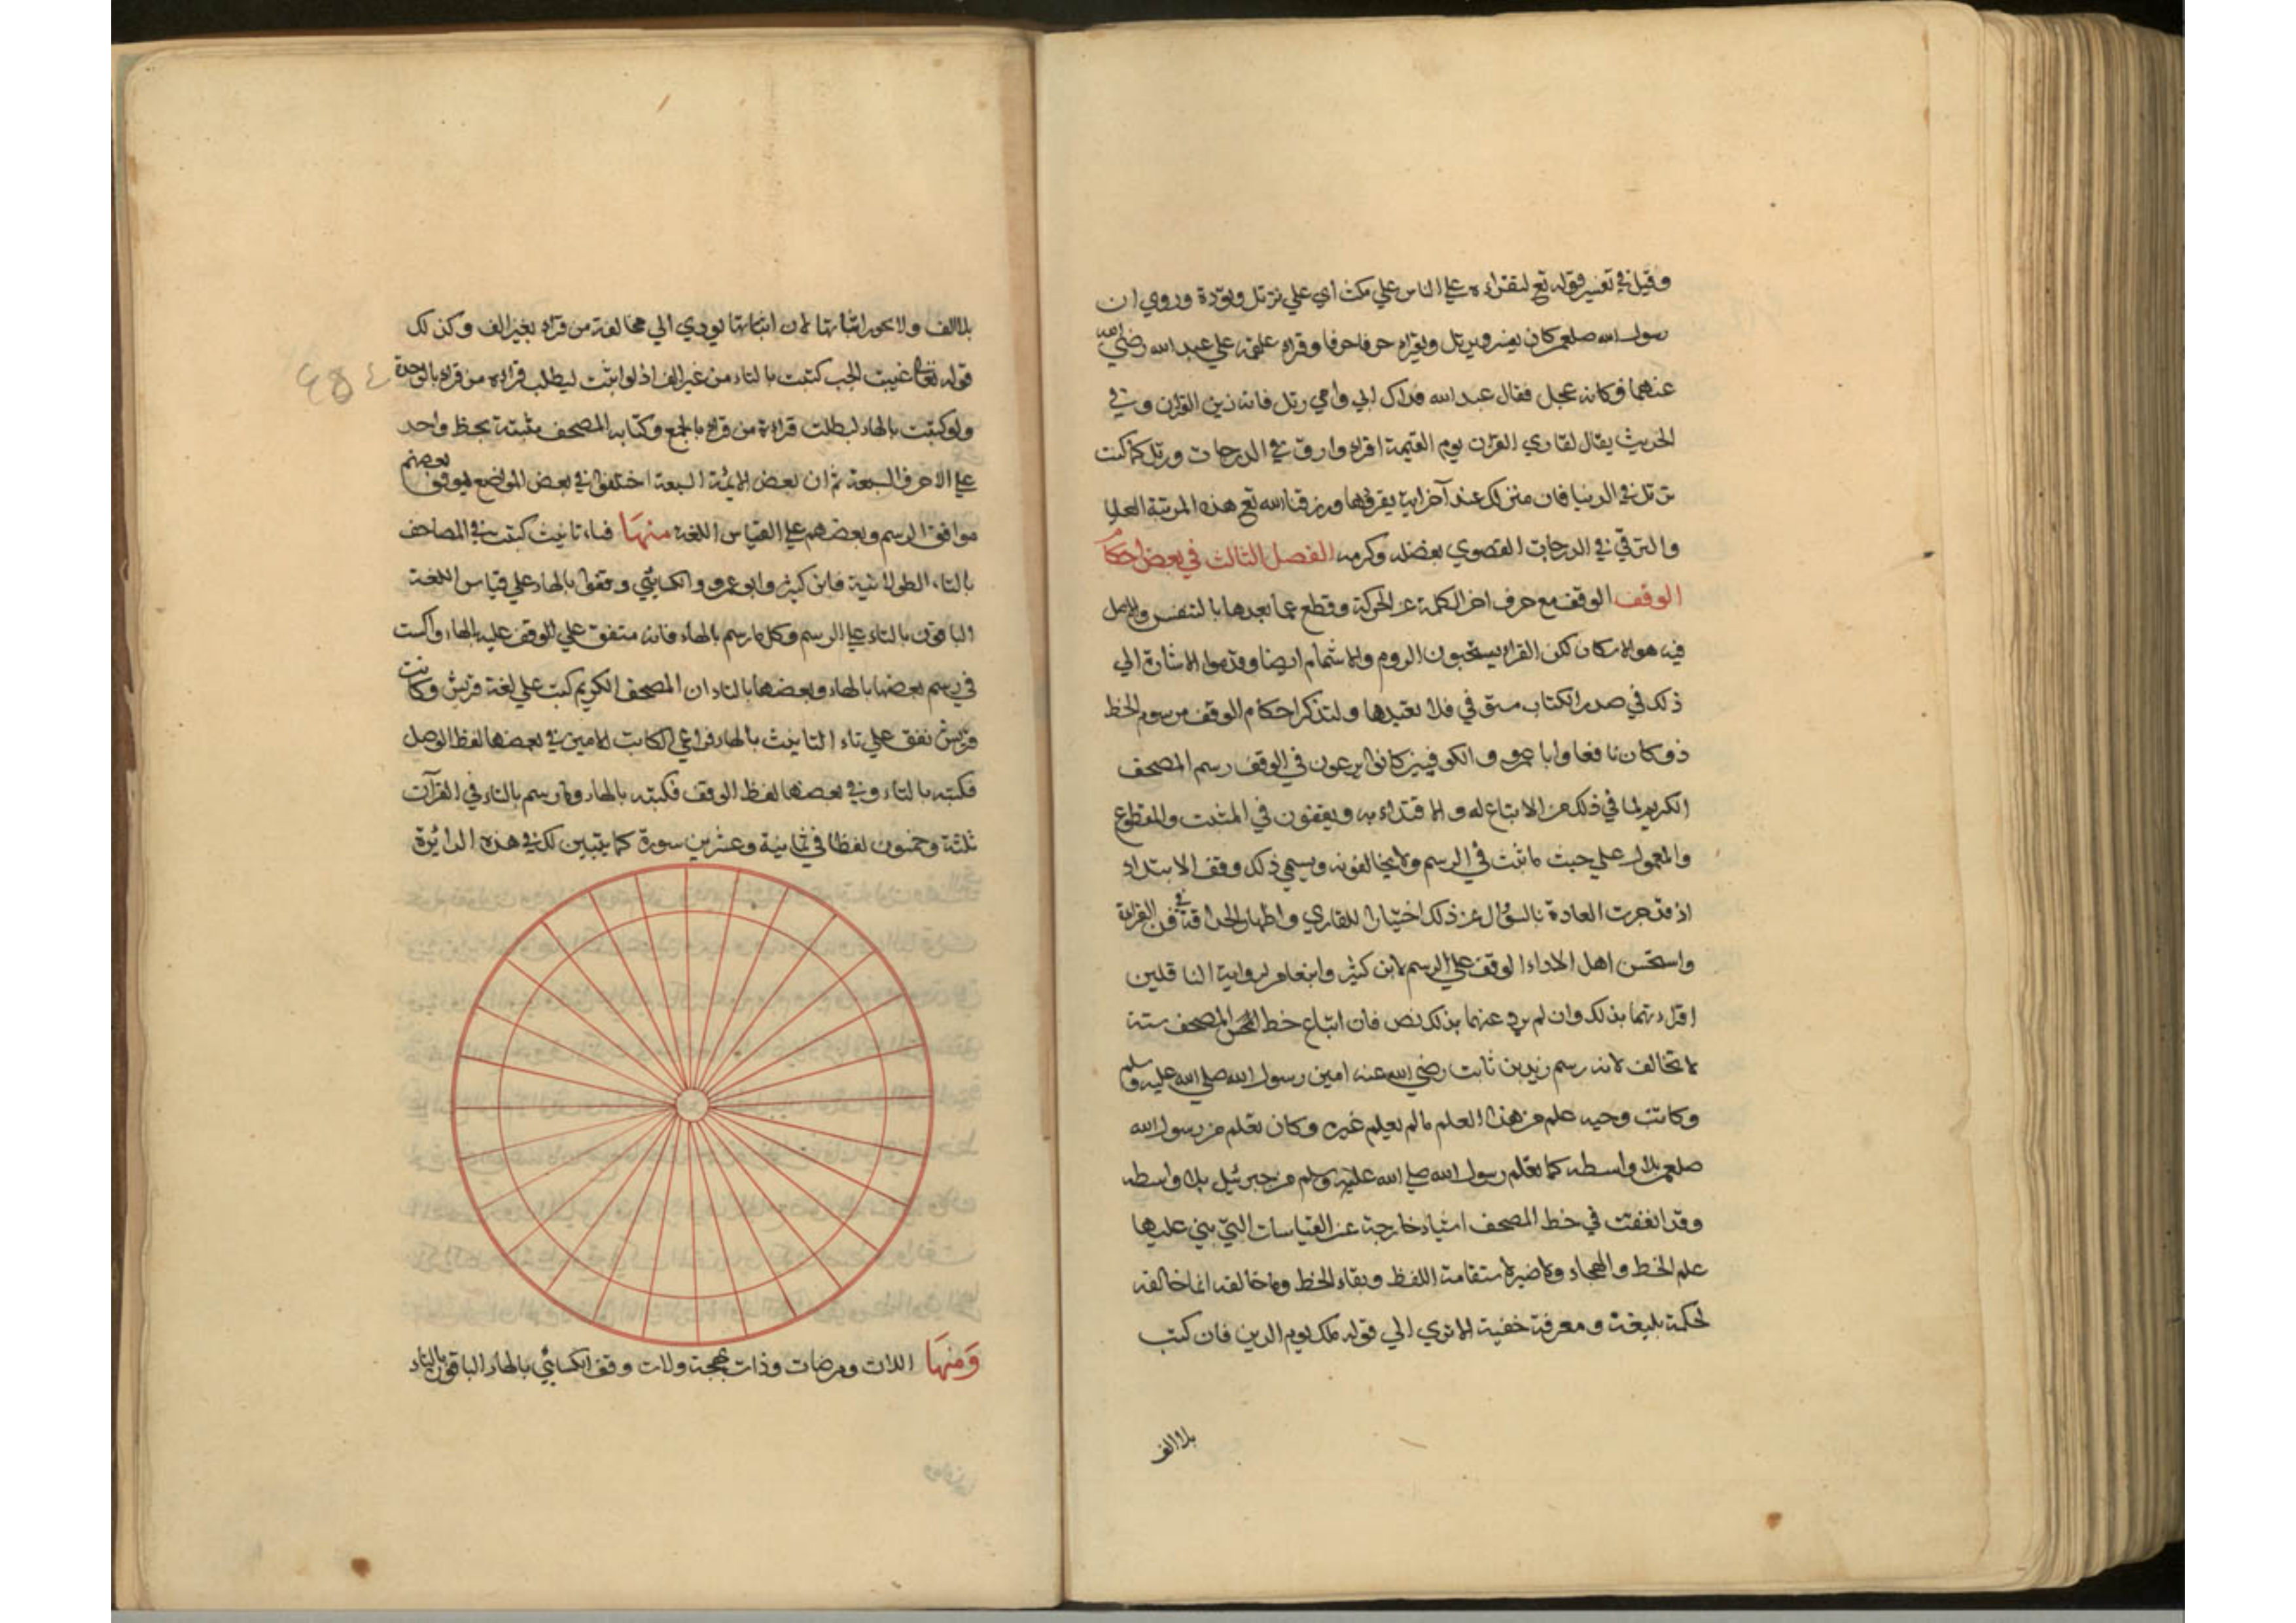 وقيل في تفسير قوله تع لتقراه علي الناس علي مكث اي علي ترتل وتؤدة وروي ان
رسول الله صلعم كان يفسر ويرتل ويقراء حرفا حرفا وقراء علقمة علي عبد الله رضي الله
عنهما فكانه عجل فقال عبد الله فداك ابي وامي رتل فانه زين القران وفي
الحديث يقال لقاري القران يوم القيمة اقراء وارق في الدرجات ورتل كما كنت
ترتل في الدنيا فان منزلك عند آخر اية يقرؤها ورزقنا الله تع هذه المرتبة العليا
والترقي في الدرجات القصوي بفضله وكرمه الفصل الثالث في بعض احكام
الوقف الوقف مع حرف اخر الكلمة عن الحركة وقطع عما بعدها بالتنفس والاصل
فيه هو الاسكان لكن القراء يستحبون الروم والاشمام ايضا وقدموا الاشارة الي
ذلك في صدر الكتاب مستوفي فلا نعيدها ولنذكر احكام الوقف مرسوم الخط
ذو كان نافعا وابا عمرو والكوفيين كانوا يرعون في الوقف رسم المصحف
الكريم لما في ذلك من الاتباع له والاقتداء به ويقفون في المثبت والمقطوع
والمعمول علي حيث ما ثبت في الرسم ولا يخالفونه ويسمي ذلك وقف الابتداء
اذ قد جرت العادة بالسؤال عن ذلك اختيارا للقاري واظهار الحذاقته في فن القراءة
واستحسن اهل الاداء الوقف علي الرسم لابن كثير وابن عامر لرواية الناقلين
اقراءتهما بذلك وان لم يرد عنهما بذلك نص فان اتباع خط المصحف سنة
لا تخالف لانه رسم زيد بن ثابت رضي الله عنه امين رسول الله صلي الله عليه وسلم
وكاتب وحيه علم من هذا العلم ما لم يعلم غيره وكان تعلم من رسول الله
صلعم بلا واسطه كما تعلم رسول الله صلي الله عليه وسلم من جبرئيل بلا واسطه
وقد اتفقت في خط المصحف اشياء خارجة عن القياسات التي بني عليها
علم الخط والهجاء ولا ضير لاستقامة اللفظ وبقاء الخط وما خالفه انما خالفه
لحكمة بليغة ومعرفة خفية الا تري الي قوله ملك يوم الدين فان كتب
بلا الف
بلا الف ولا يجوز اثباتها لان اثباتها يودي الي مخالفة من قراء بغير الف وكذلك
قوله تعالي غيبت الجب كتبت بالتاء من غير الف اذ لو اثبت ليطلب قراءة من قراء بالوحدة
ولو كتبت بالهاء لبطلت قراءة من قراء بالجمع وكتابه المصحف مثبتة بخط واحد
علي الاحرف السبعة ثم ان بعض الائمة السبعة اختلفوا في بعض المواضع فوقف بعضهم
موافق الرسم وبعضهم علي القياس اللغة منها فتاء تانيث كتبت في المصاحف
بالتاء الطولانية فابن كثير وابو عمرو والكسائي وقفوا بالهاء علي قياس اللغة
الباقون بالتاء علي الرسم وكل ما رسم بالهاء فانه متفق علي الوقف عليه بالهاء
في رسم بعضها بالهاء وبعضها بالتاء ان المصحف الكريم كتب علي لغة قريش وكانت
قريش تقف علي تاء التانيث بالهاء فراعي الكاتب الامين في بعضها لفظ الوصل
فكتبه بالتاء وفي بعضها لفظ الوقف فكتبه بالهاء وما رسم بالتاء في القرآن
ثلثة وخمسون لفظا في ثمانية وعشرين سورة كما يتبين لك في هذه الدائرة
ومنها اللات ومرضات وذات بهجة ولات وقف الكسائي بالهاء الباقون بالتاء